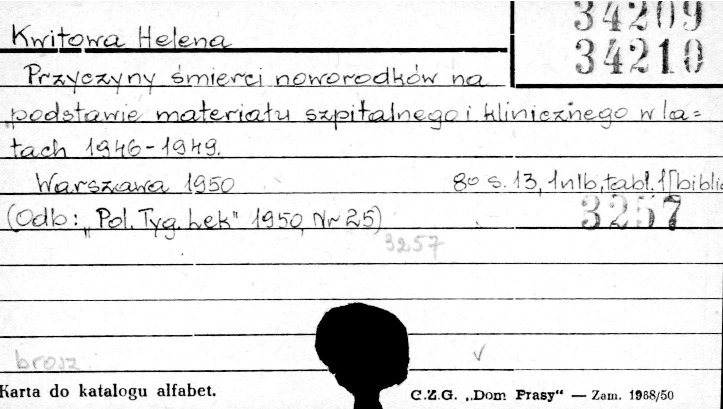 34209
Kwitowa Helena
34210
Przyczyny śmierci noworodków na
podstawie materiału szpitalnego i klinicznego w la=
tach 1946-1949.
Warszawa 1950 8° s. 13, 1 nlb, tabl. 1 [biblio
(Odb: „Pol. Tyg. Lek" 1950, Nr 25) 3257
3257
brosz. v
Karta do katalogu alfabet. C.Z.G. „Dom Prasy" — Zam. 1988/50